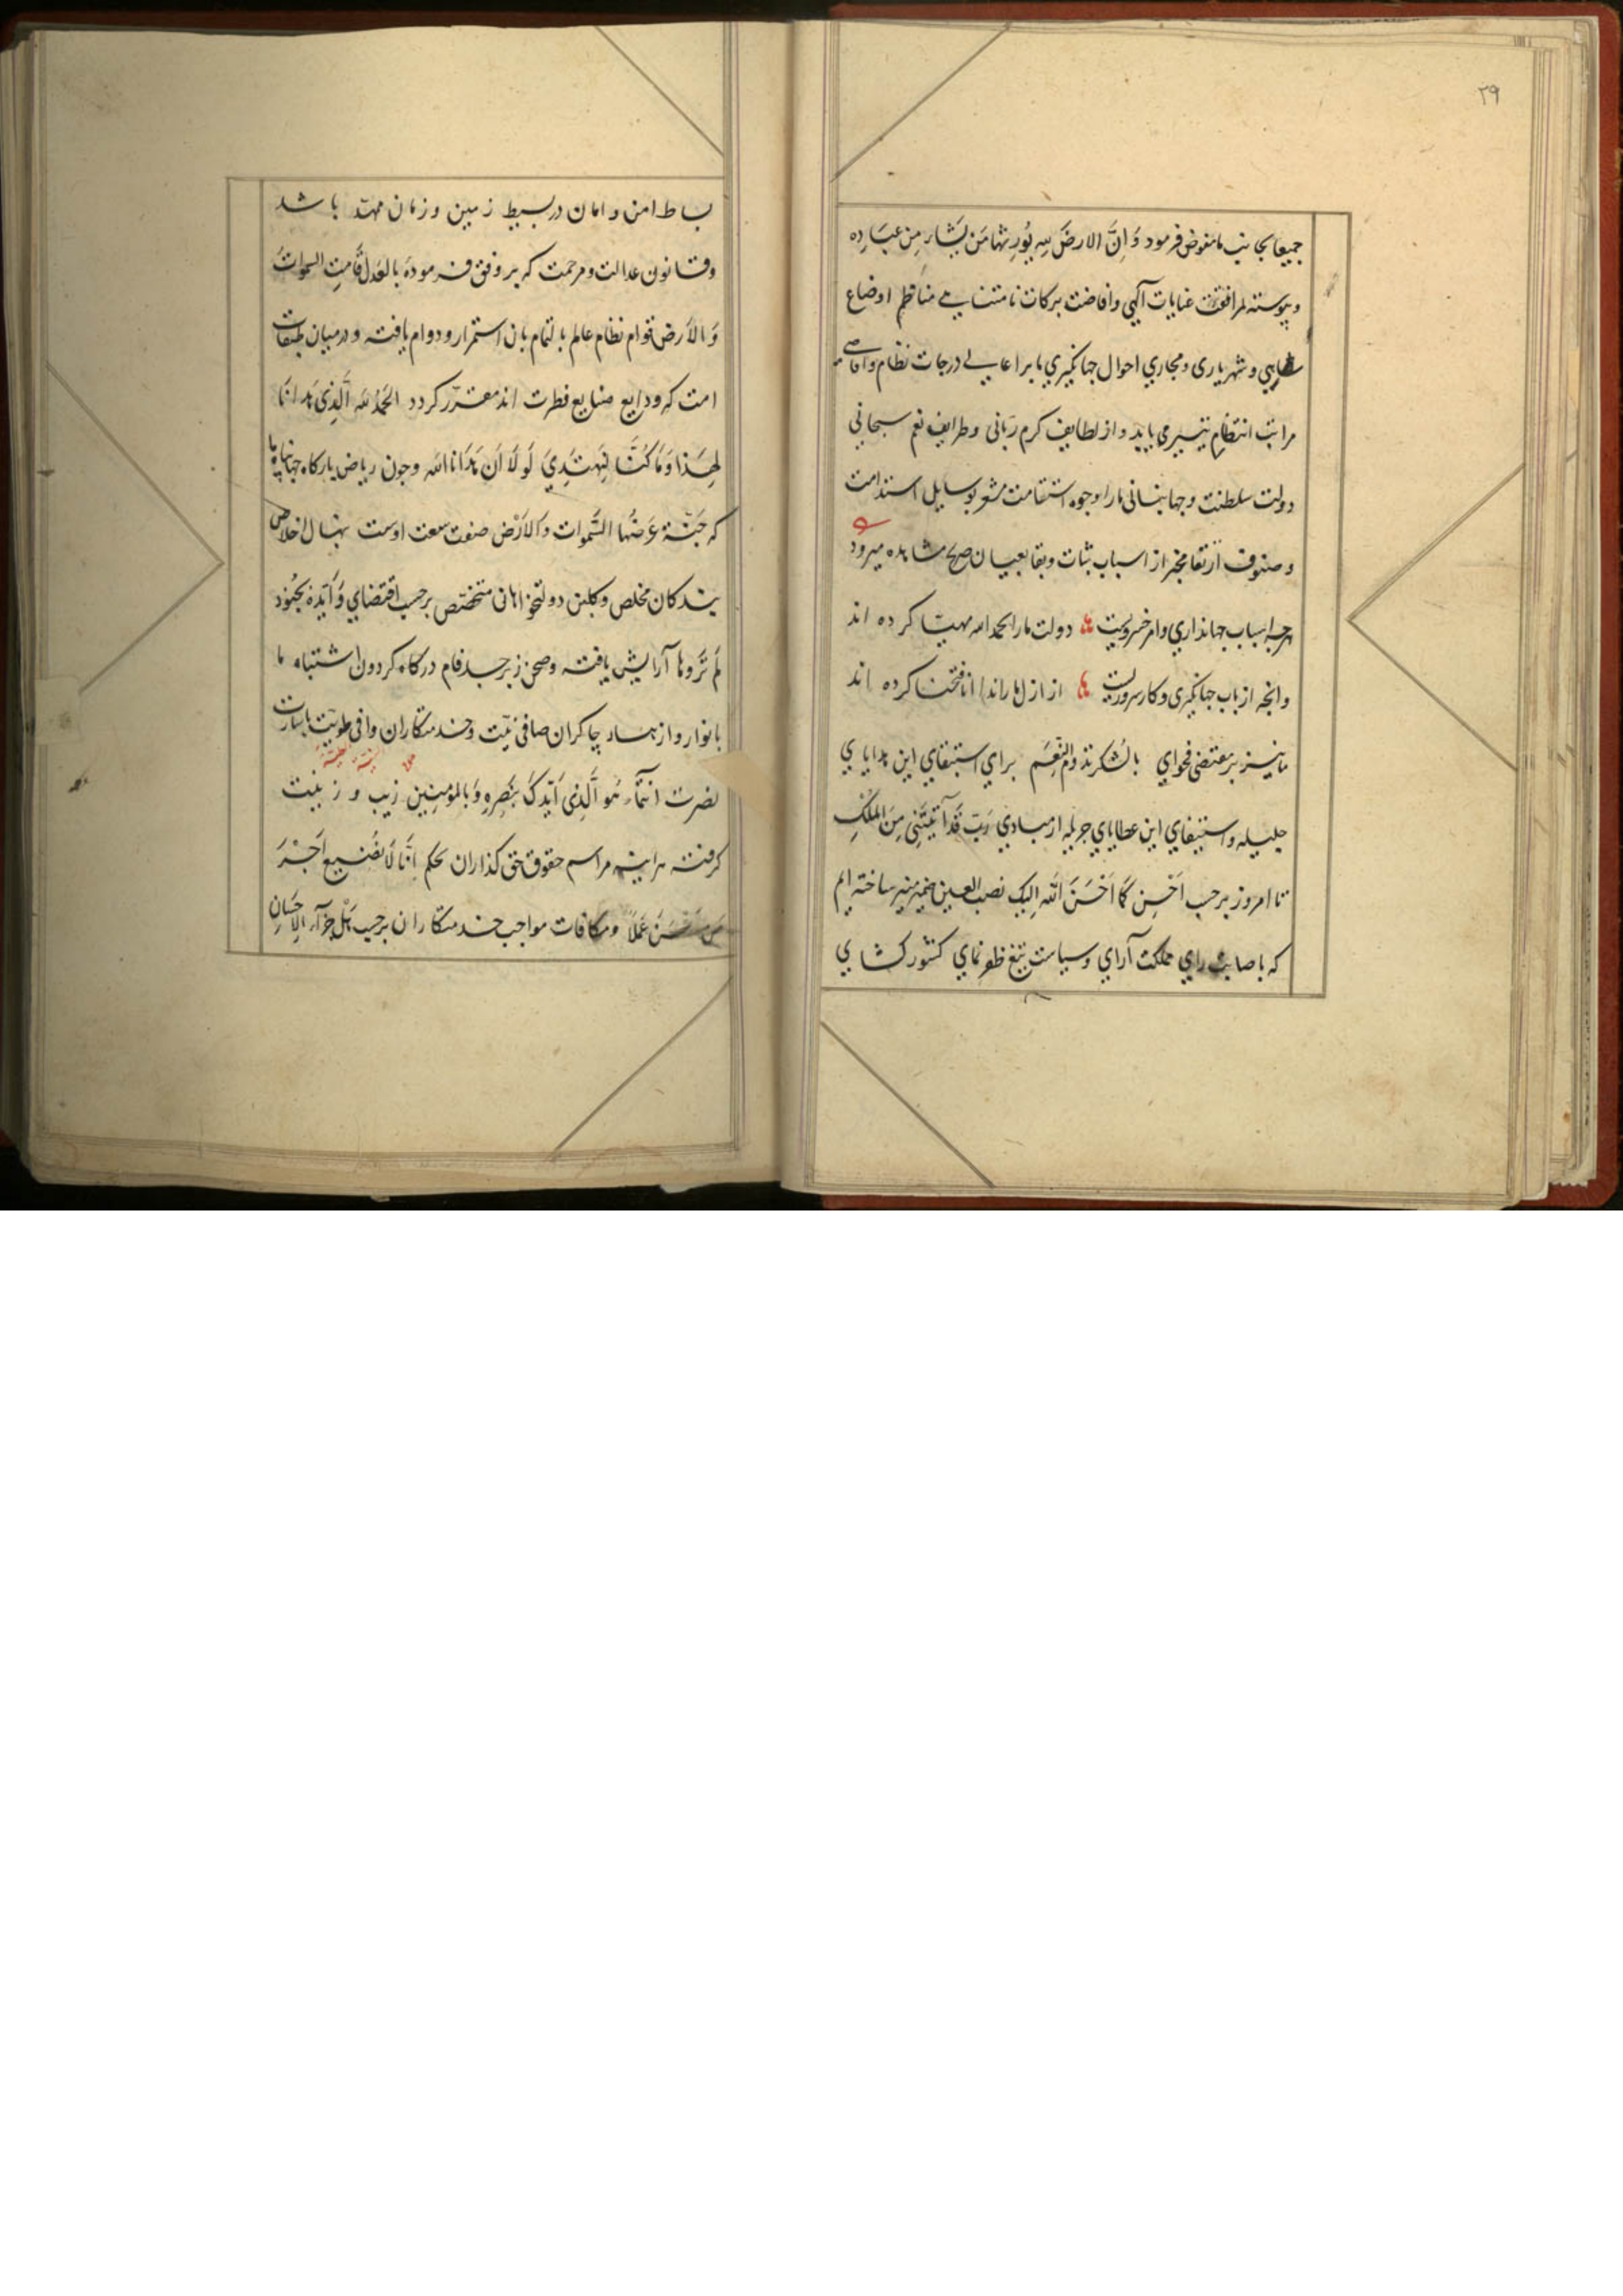 ۳۹
جمیعا بجانب ما مفوض فرمود وَاِنَّ الارضَ لله یُورِثها مَن یَشاء مِن عِبَادِه
و پیوسته بمرافقت عنایات آلهی و افاضت برکات نامتناهی مناظم اوضاع
شاهی و شهریاری و مجاری احوال جهانکیری ما براعالی درجات نظام و اقاصی
مراتب انتظام تیسیر می یابد و از لطایف کرم ربّانی و طرایف نعم سبحانی
دولت سلطنت و جهانبانی ما را وجوه استقامت مشعر بوسایل استدامت
و صنوف ارتقا مخبر از اسباب ثبات و بقا بعیان صریح مشاهده میرود
هرچه اسباب جهانداری و امر خسرویست ها دولت ما را بحمدالله مهیّا کرده اند
وانچه از باب جهانکیری و کار سروریست ها از ازل ما را ندا انا فتحنا کرده اند
ما نیز بر مقتضی فحوای بالشکر تدوم النِّعَم برای استبقای این هدایای
جلیله و استیفای این عطایای جزیله از مبادی رَبّ قَد آتَیتَنِی مِنَ المُلکِ
تا امروز برحسب اَحسِن کَمَا اَحْسَنَ اللّه اِلیک نصب العین ضمیر منیر ساخته ایم
که باصابت رای مملکت آرای و سیاست تیغ ظفر نمای کشور کشای
بساط امن و امان در بسیط زمین و زمان ممهّد باشد
و قانون عدالت و مرحمت که بر وفق فرمودهٔ بالعَدل قَامتِ السموات
وَالاَرض قوام نظام عالم بالتمام بان استمرار و دوام یافته و در میان طبقات
امت که ودایع صنایع فطرت اند مقرّر کردد الحَمدُ لله الَّذِی هَدانَا
لِهَذا وَمَا کُنَّا لِنَهتَدِیَ لَولَا اَن هَدَانَا الله و چون ریاض بارکاه جهانپناه ما
که جَنّة عَرضُها السَّموات وَالاَرْض صفت سعت اوست بنهال اخلاص
بندکان مخلص و کلبن دولتخواهان متخصّص برحسب اقتضای وَاَیَّدَهُ بِجُنُودٍ
لَم تَرَوها آرایش یافته و صحن زبرجد فام درکاه کردون اشتباه ما
بانوار و ازهار چاکران صافی نیّت و خدمتکاران وافی طویّت باشارت
نصرت انتماء هُوَ الَّذِی اَیّدکَ بِنَصرِهِ وَبِالمؤمِنِین زیب و زینت
کرفته هراینه مراسم حقوق حق کذاران بحکم اِنَّا لاَ نُضیع اَجْرَ
مَن اَحْسَنَ عَمَلاً و مکافات مواجب خدمتکاران برحسب هَل جَزآء الاِحسَانِ